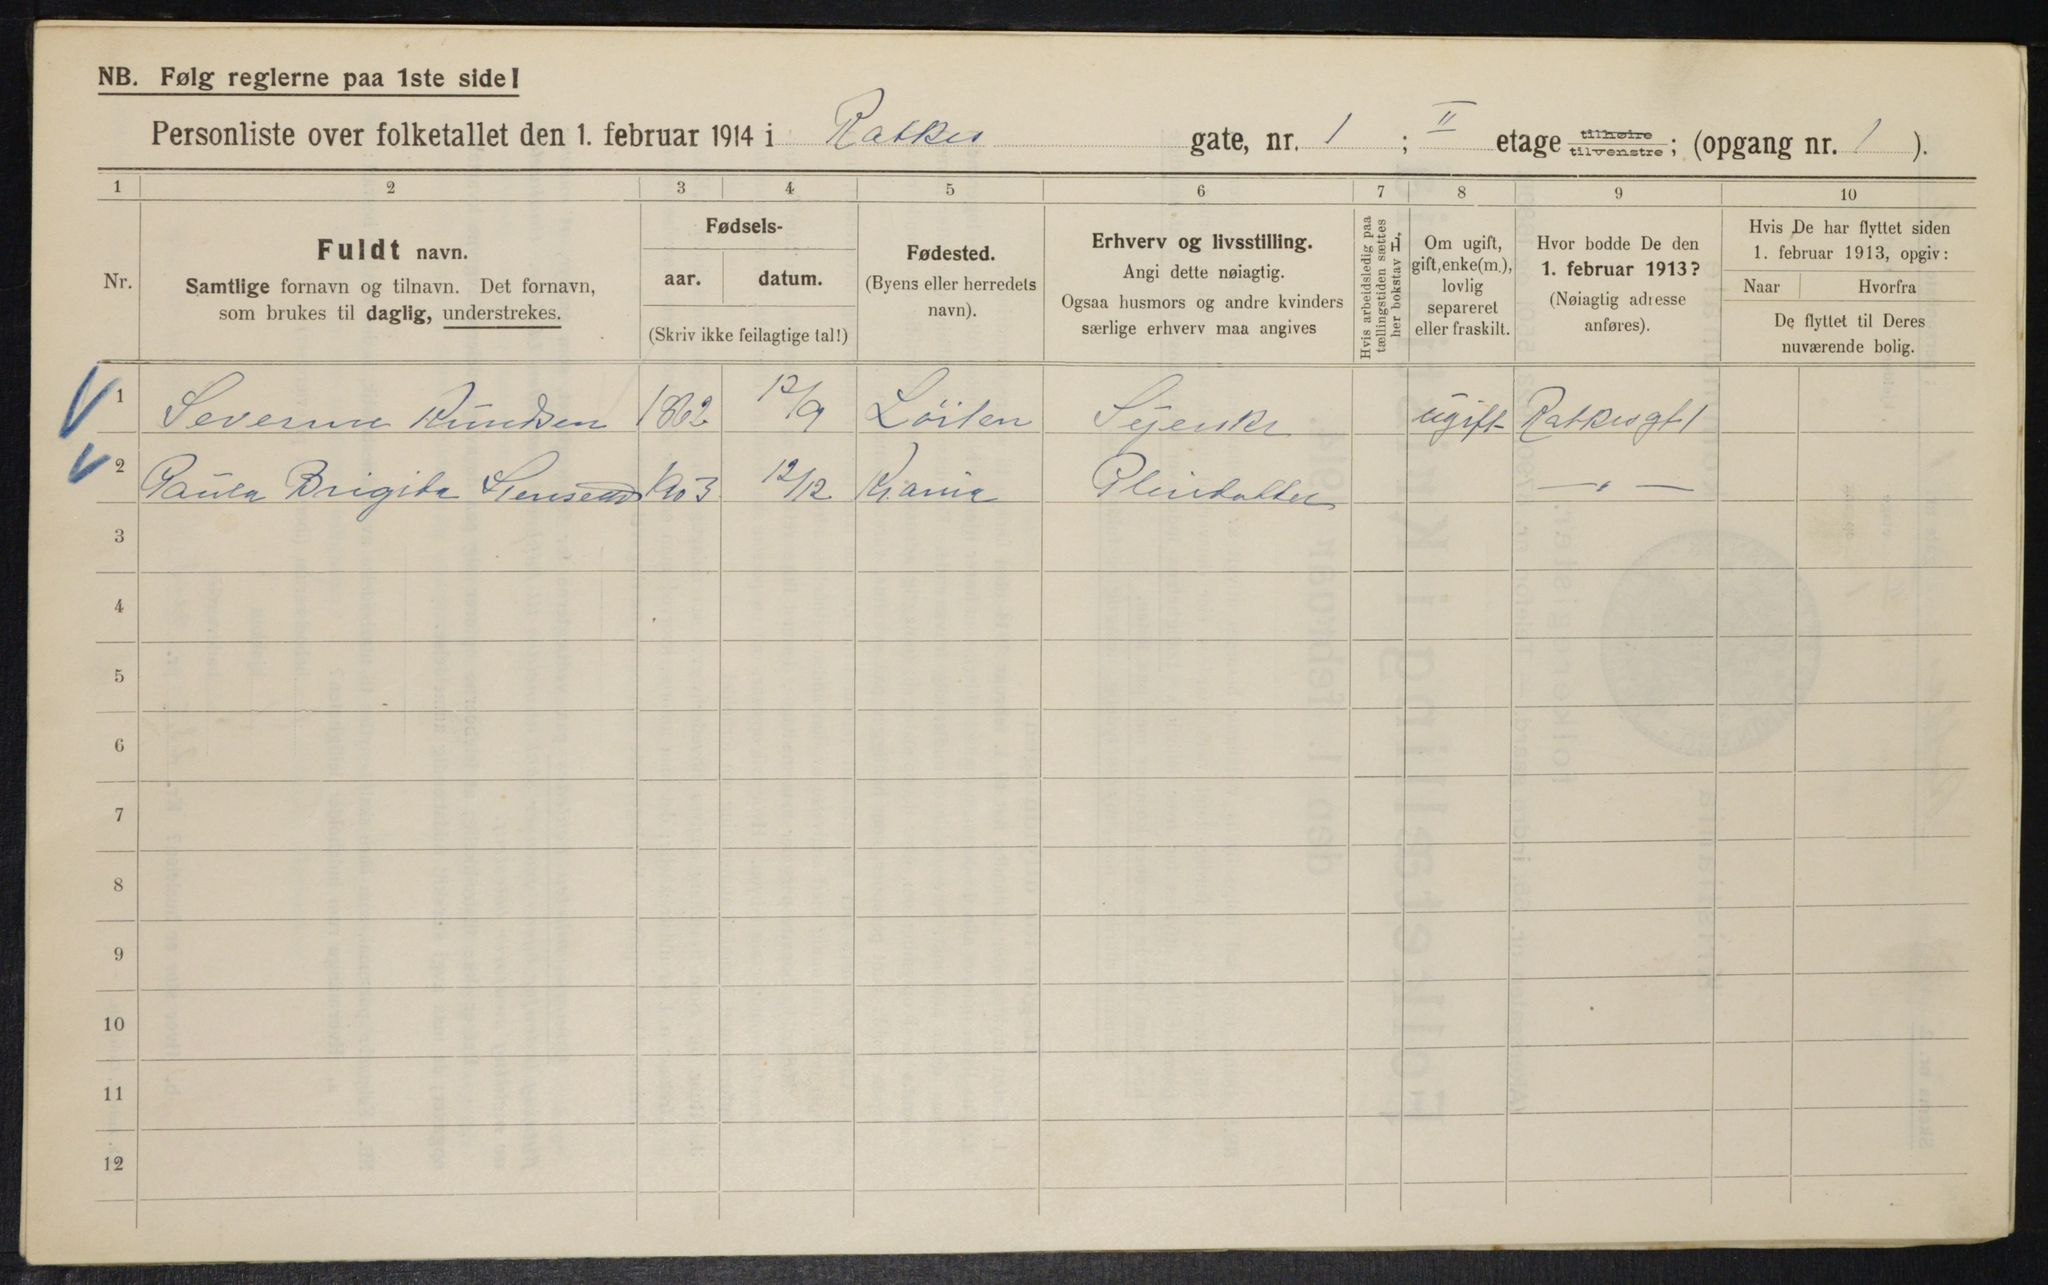 NB. Følg reglerne paa 1ste side!
Personliste over folketallet den 1. februar 1914 i Ratkes gate, nr. 1 ; II etage tilhøire tilvenstre; (opgang nr. 1 ).
1 2 3 4 5 6 7 8 9 10
Nr.
Fuldt navn.
Samtlige fornavn og tilnavn. Det fornavn,
som brukes til daglig, understrekes.
Fødsels-
aar. datum.
(Skriv ikke feilagtige tal!)
Fødested.
(Byens eller herredets
navn).
Erhverv og livsstilling.
Angi dette nøiagtig.
Ogsaa husmors og andre kvinders
særlige erhverv maa angives
Hvis arbeidsledig paa
tællingstiden sættes
her bokstav L.
Om ugift,
gift, enke(m.),
lovlig
separeret
eller fraskilt.
Hvor bodde De den
1. februar 1913?
(Nøiagtig adresse
anføres).
Hvis De har flyttet siden
1. februar 1913, opgiv:
Naar Hvorfra
De flyttet til Deres
nuværende bolig.
1 Severine Knudsen 1862 12/9 Löiten Syerske ugift Ratkesgt 1
2 Paula Brigita 1903 12/12 Krania Pleiedatter — " —
3
4
5
6
7
8
9
10
11
12